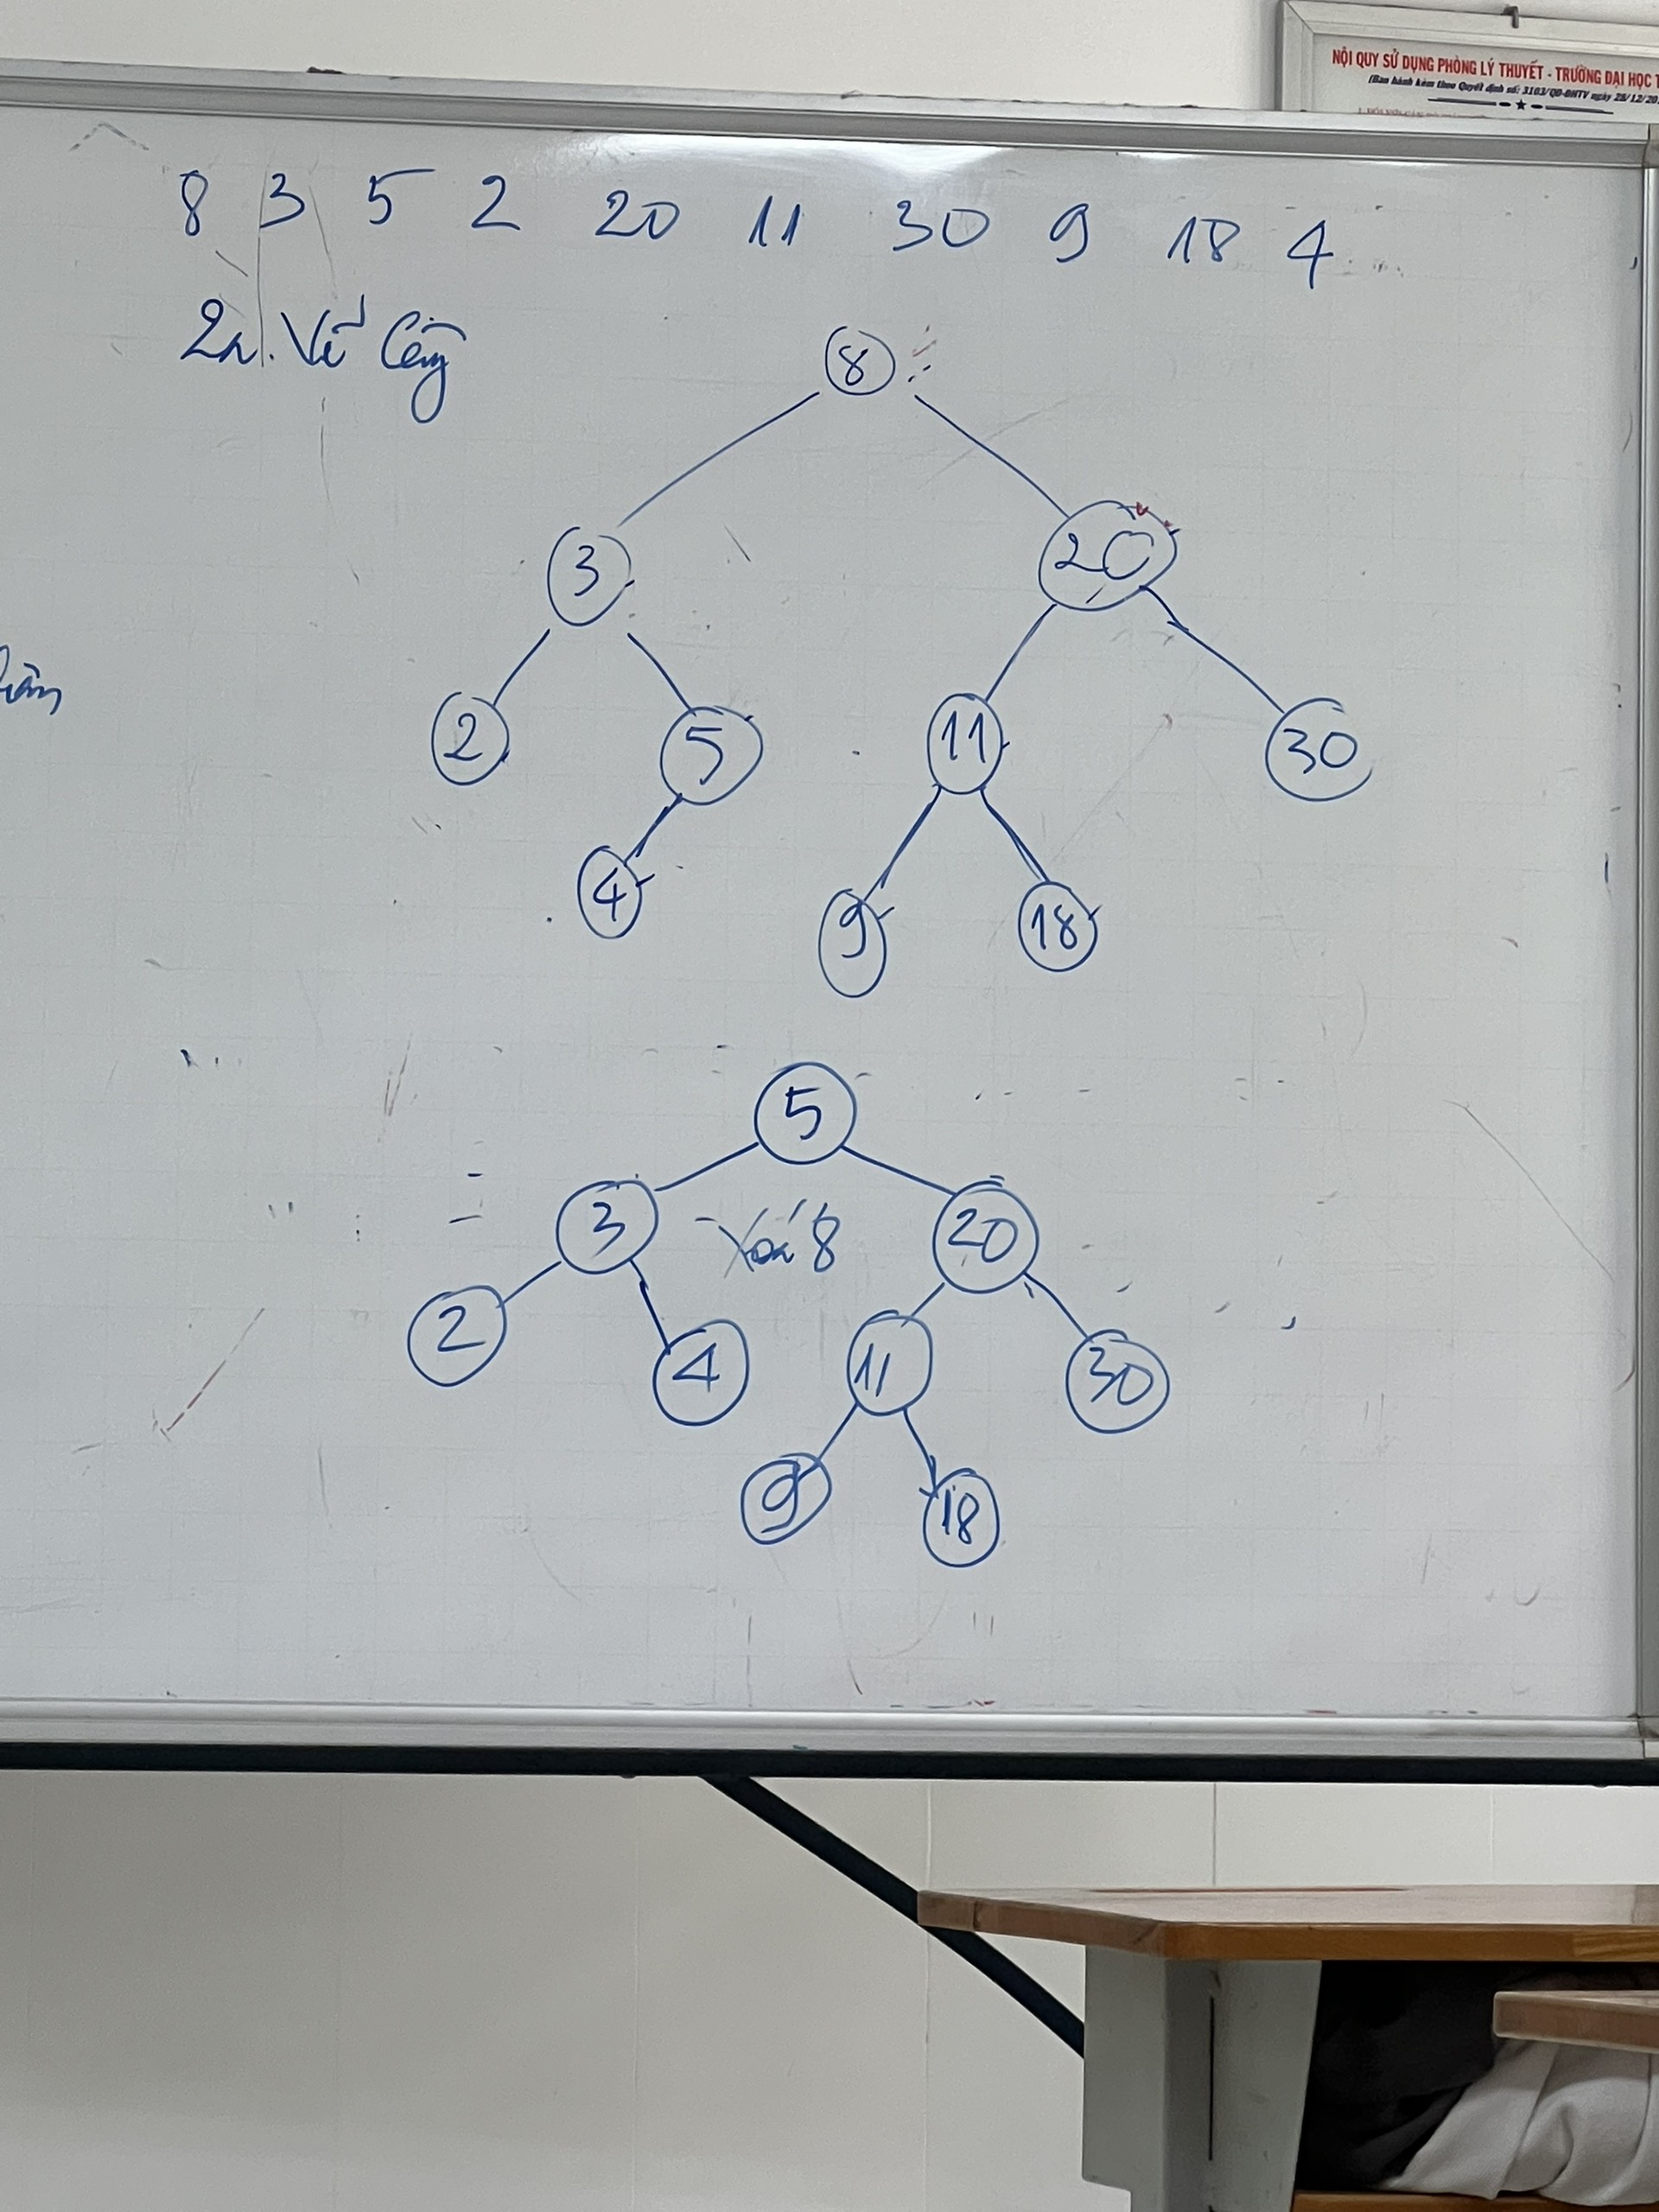 NỘI QUY SỬ DỤNG PHÒNG LÝ THUYẾT - TRƯỜNG ĐẠI HỌC T
(Ban hành kèm theo Quyết định số: 3103/QĐ-ĐHTV ngày 28/12/20
8 3 5 2 20 11 30 9 18 4
2a. Vẽ Cây
8
3 20
2 5 11 30
4 9 18
5
3 Xoá 8 20
2 4 11 30
9 18